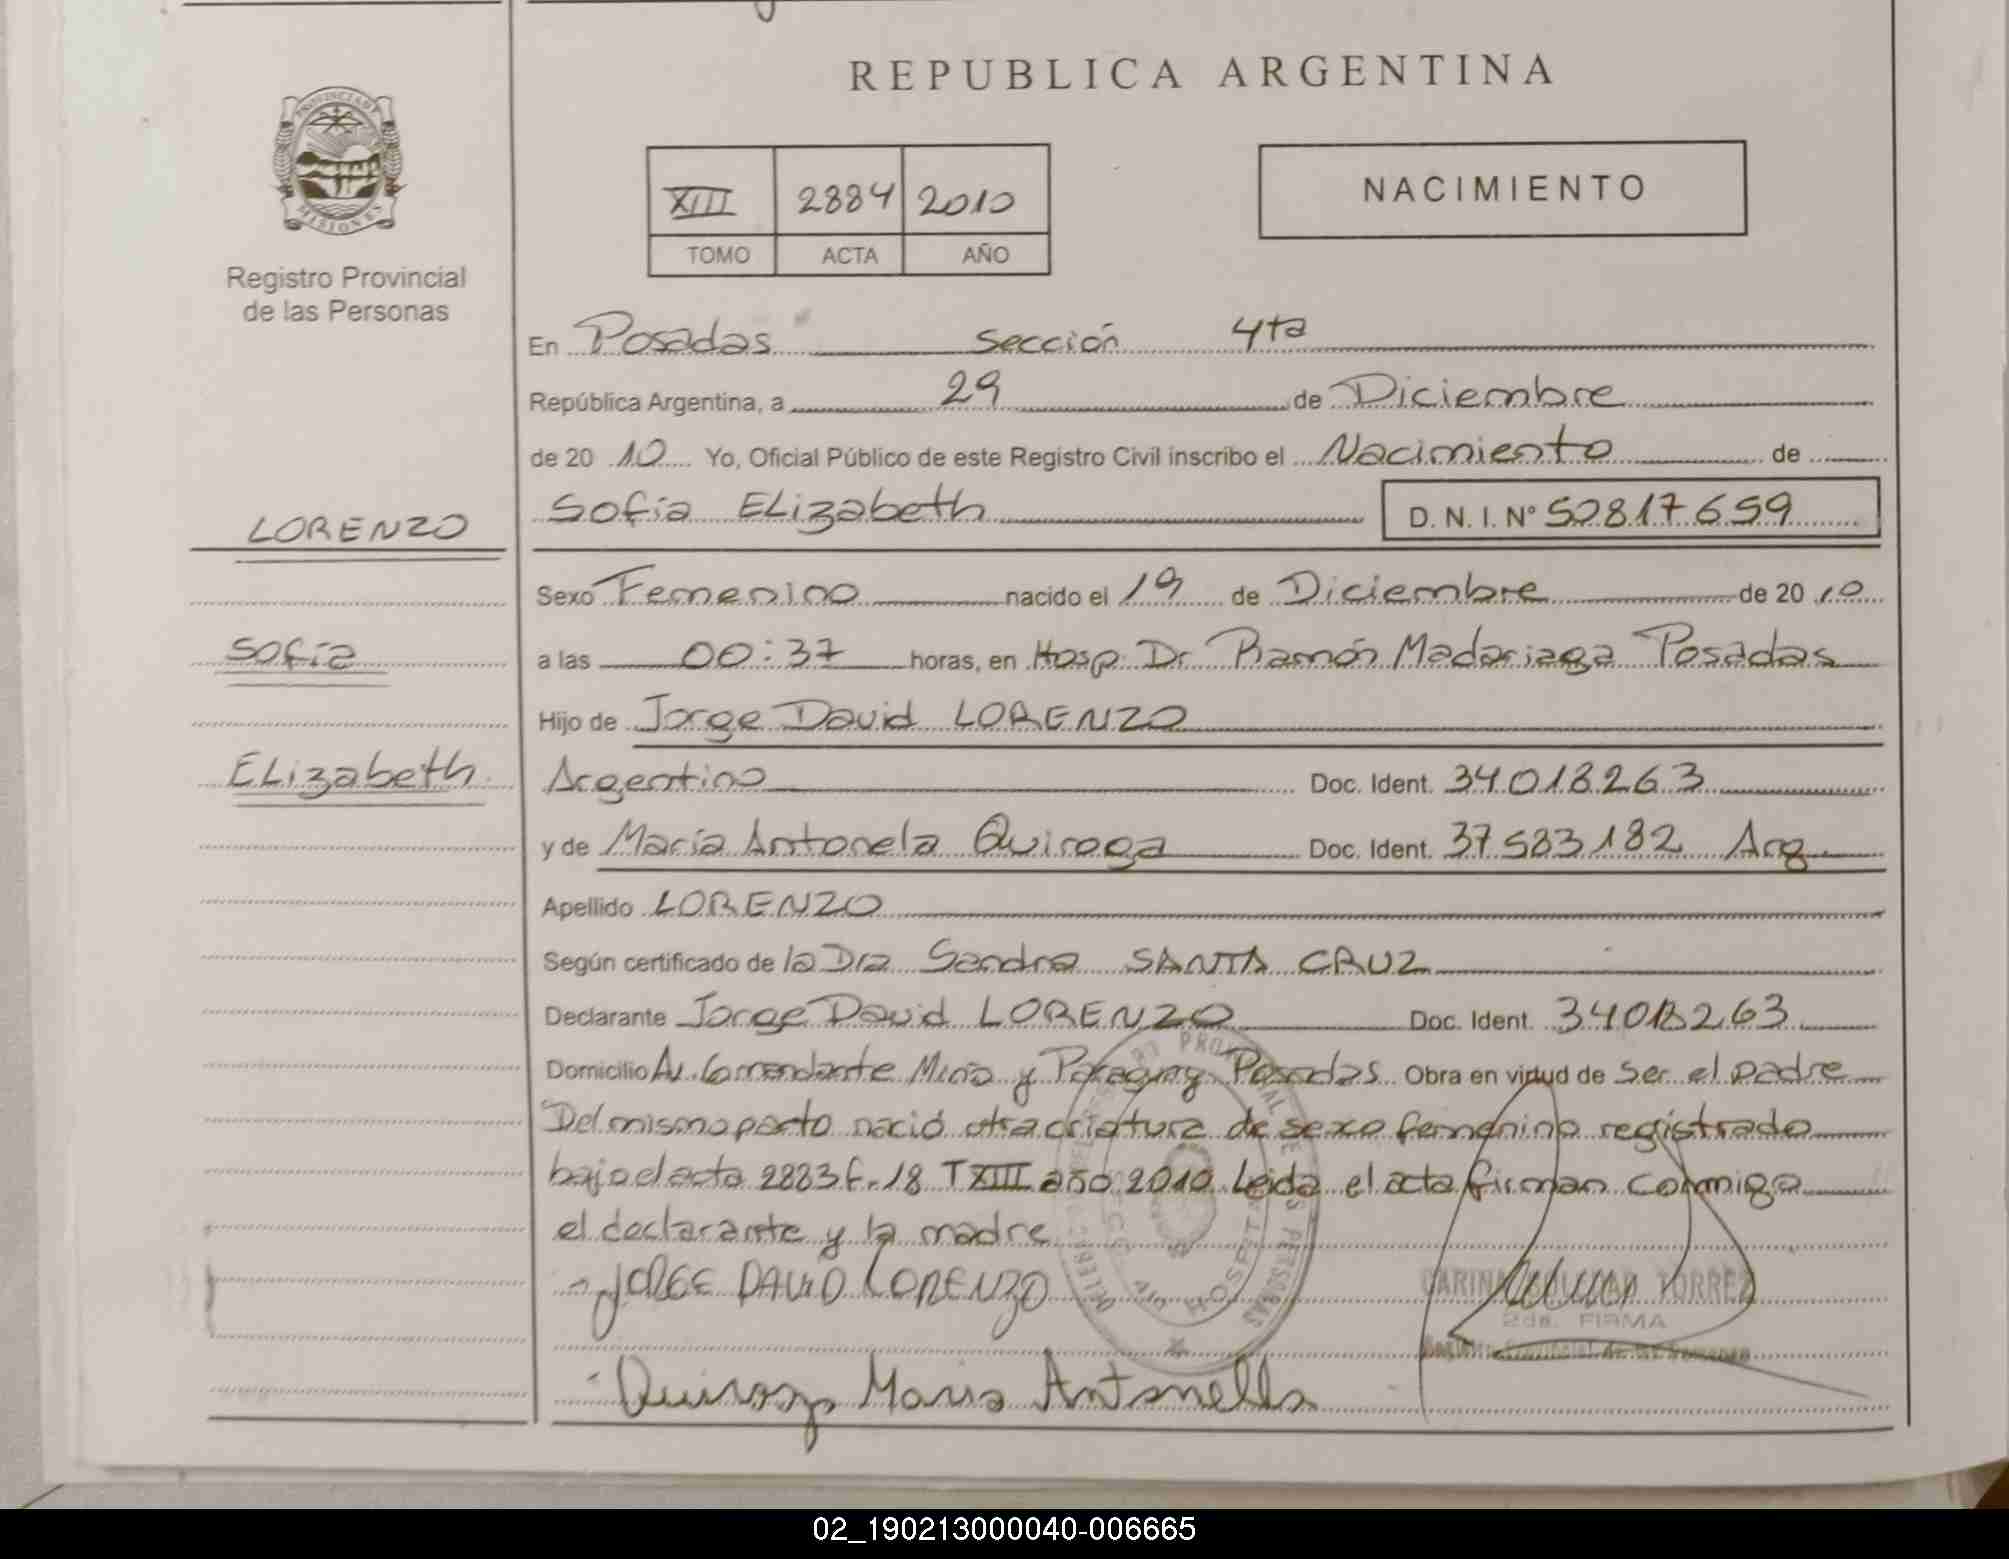 REPUBLICA ARGENTINA
PROVINCIA DE
MISIONES
Registro Provincial
de las Personas
XIII 2884 2010
TOMO ACTA AÑO
NACIMIENTO
En Posadas sección 4ta
República Argentina, a 29 de Diciembre
de 20 10 Yo, Oficial Público de este Registro Civil inscribo el Nacimiento de
LORENZO
Sofia Elizabeth D. N. I. N° 50817659
Sexo Femenino nacido el 19 de Diciembre de 20 10
Sofia
a las 00:37 horas, en Hosp. Dr Ramón Madariaga Posadas
Hijo de Jorge David LORENZO
Elizabeth
Argentino Doc. Ident. 34018263
y de María Antonela Quiroga Doc. Ident. 37583182 Arg.
Apellido LORENZO
Según certificado de la Dra Sandra SANTA CRUZ
Declarante Jorge David LORENZO Doc. Ident. 34018263
Domicilio Av. Comandante Miño y Paraguay Posadas Obra en virtud de Ser el padre
Del mismo parto nació otra criatura de sexo femenino registrado
bajo el acta 2883 f. 18 T XIII año 2010 Leida el acta firman conmigo
el declarante y la madre
JORGE DAVID LORENZO
TORREZ
2da. FIRMA
Quiroga Maria Antonella
02_190213000040-006665